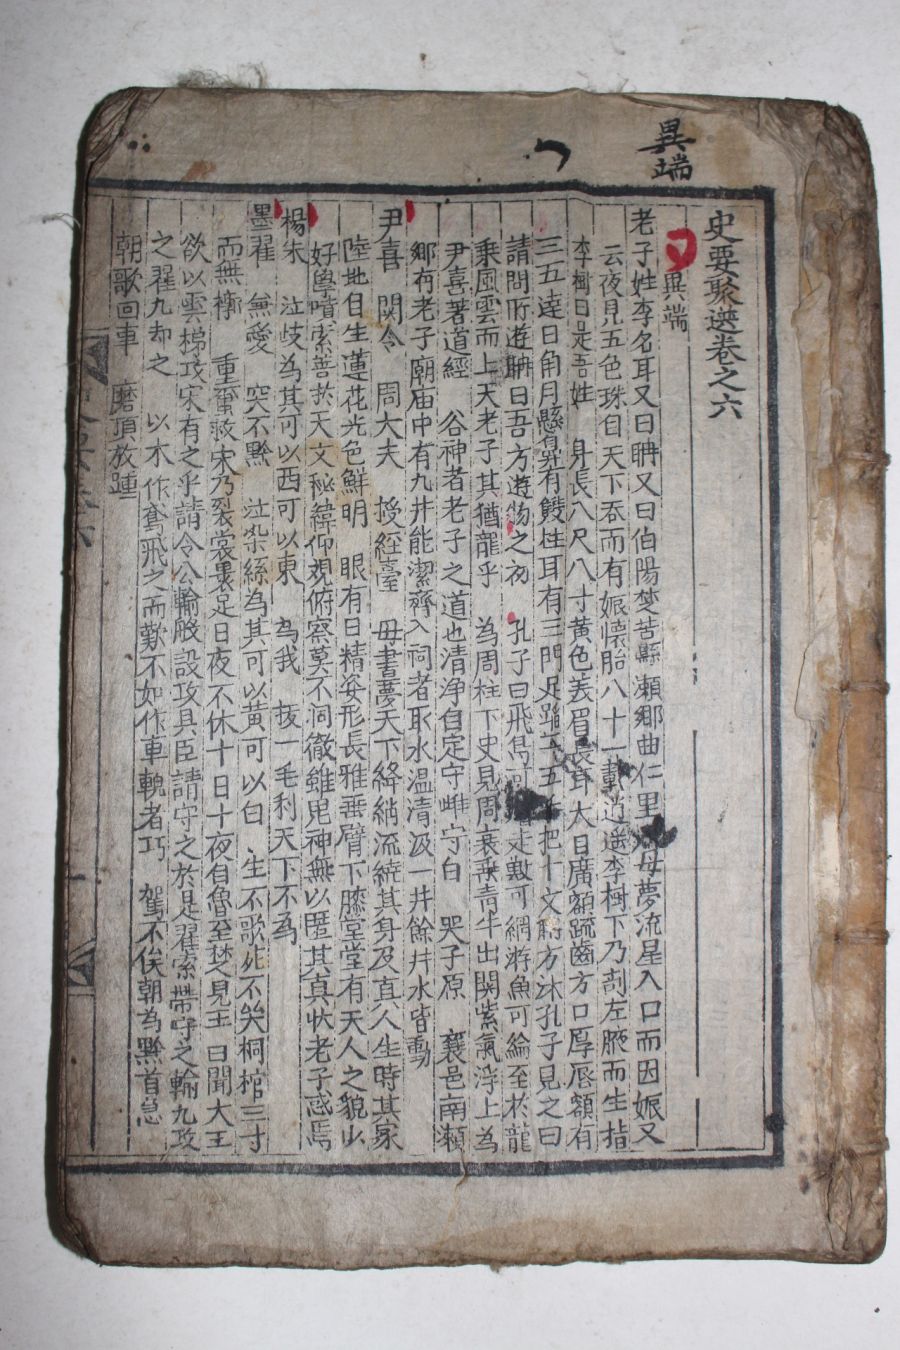 異端
史要聚選卷之六
異端
老子姓李名耳又曰聃又曰伯陽楚苦縣瀨鄉曲仁里人母夢流星入口而因娠又
云夜見五色珠自天下吞而有娠懷胎八十一載逍遙李樹下乃剖左腋而生指
李樹曰是吾姓 身長八尺八寸黃色美眉長耳大目廣額疏齒方口厚唇額有
三五達日角月懸鼻有雙柱耳有三門足蹈二五手把十文 孔子見之曰
請問所遊聃曰吾方遊物之初 孔子曰飛鳥可 走獸可網游魚可綸至於龍
乘風雲而上天老子其猶龍乎 為周柱下史見周衰乘青牛出関紫氣浮上為
尹喜著道經 谷神者老子之道也清淨自定守雌守白 哭子原 襄邑南瀨
鄉有老子廟庙中有九井能潔齊入祠者取水温清汲一井餘井水皆動
尹喜 関令 周大夫 授經臺 母晝夢天下絳綃流繞其身及真人生時其家
陸地自生蓮花光色鮮明 眼有日精姿形長雅垂臂下膝堂堂有天人之貌少
好學墳索善於天文秘緯仰觀俯察莫不洞徹雖鬼神無以匿其真狀老子感焉
楊朱 泣歧為其可以西可以東 為我 拔一毛利天下不為
墨翟 無愛 突不黔 泣染絲為其可以黃可以白 生不歌死不哭桐棺三寸
而無槨 重蠒救宋乃裂裳裹足日夜不休十日十夜自魯至楚見王曰聞大王
欲以雲梯攻宋有之乎請令公輸般設攻具臣請守之於是翟索帶守之輸九攻
之翟九却之 以木作鳶飛之而歎不如作車輗者巧 駕不俟朝為黔首急
朝歌回車 磨頂放踵